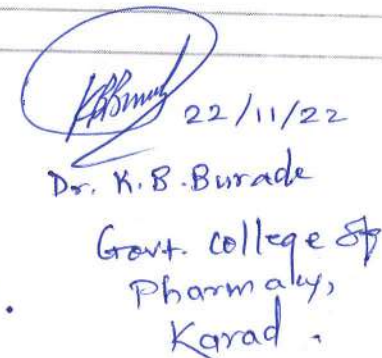 22/11/22
Dr. K. B. Burade
Govt. college of
Pharmacy,
Karad.